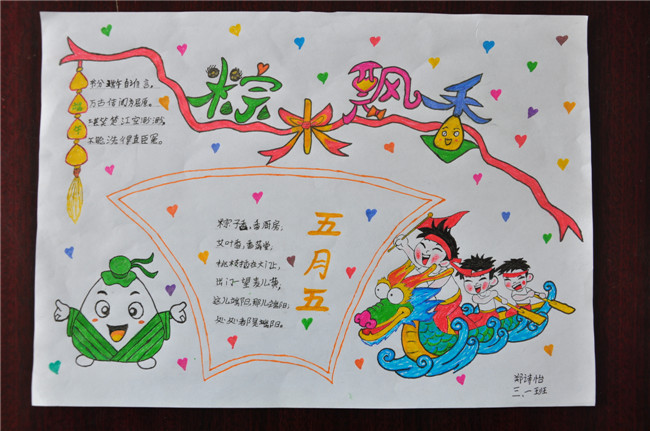 粽飘香
节分端午自谁言。
万古传闻为屈原。
堪笑楚江空渺渺,
不能洗得直臣冤。
五月五
粽子香,香厨房,
艾叶香,香满堂,
桃枝插在大门上,
出门一望麦儿黄,
这儿端阳,那儿端阳,
处处都是端阳。
郑诗怡
三、一班